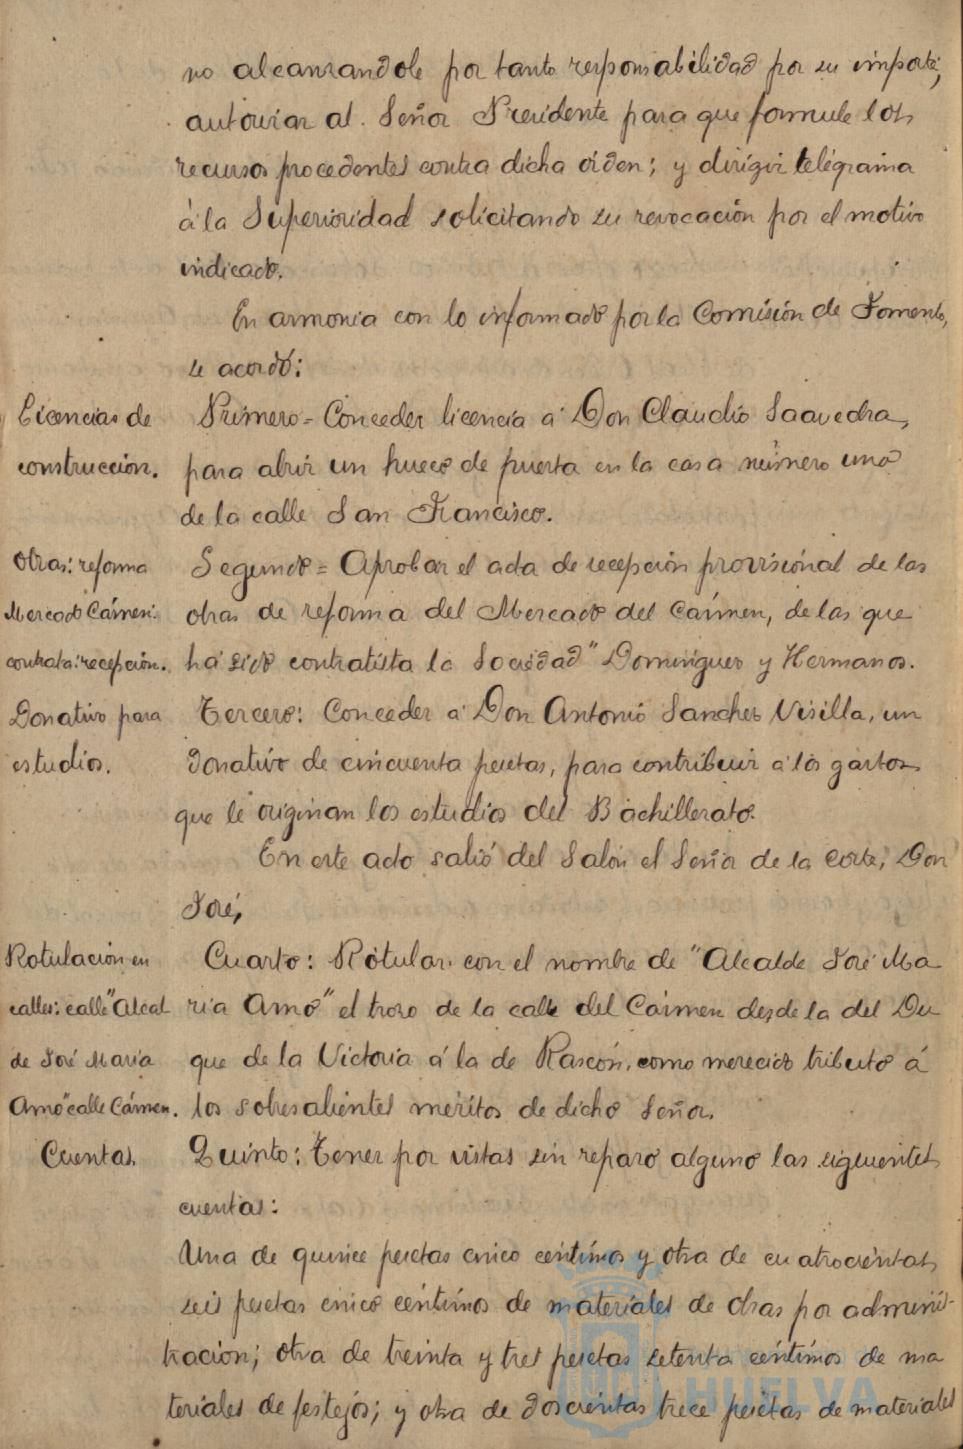 no alcanzandole por tanto responsabilidad por su importe;
autorizar al Señor Presidente para que formule los
recursos procedentes contra dicha órden; y dirigir telégrama
á la Superioridad solicitando su revocación por el motivo
indicado.
En armonia con lo informado por la Comisión de Fomento,
se acordó:
Licencias de
construcción.
Primero = Conceder licencia á Don Claudio Saavedra,
para abrir un hueco de puerta en la casa número uno
de la calle San Francisco.
Obras: reforma
Mercado Cármen:
contrata: recepción.
Segundo = Aprobar el acta de recepción provisional de las
obras de reforma del Mercado del Cármen, de las que
há sido contratista la Sociedad "Dominguez y Hermanos.
Donativo para
estudios.
Tercero: Conceder á Don Antonio Sanchez Visilla, un
donativo de cincuenta pesetas, para contribuir á los gastos
que le originan los estudios del Bachillerato.
En este acto salió del Salón el Señor de la Corte, Don
José,
Rotulación en
calles: calle "Alcal
de José Maria
Amo" calle Cármen.
Cuarto: Rótular con el nombre de "Alcalde José Ma
ria Amo" el trozo de la calle del Cármen desde la del Du
que de la Victoria á la de Rascón, como merecido tributo á
los sobresalientes méritos de dicho Señor.
Cuentas.
Quinto: Tener por vistas sin reparo alguno las siguientes
cuentas:
Una de quince pesetas cinco centimos y otra de cuatrocientas
seis pesetas cinco céntimos de materiales de obras por adminis-
tración; otra de treinta y tres pesetas setenta céntimos de ma
teriales de festejos; y otra de doscientas trece pesetas de materiales
HUELVA